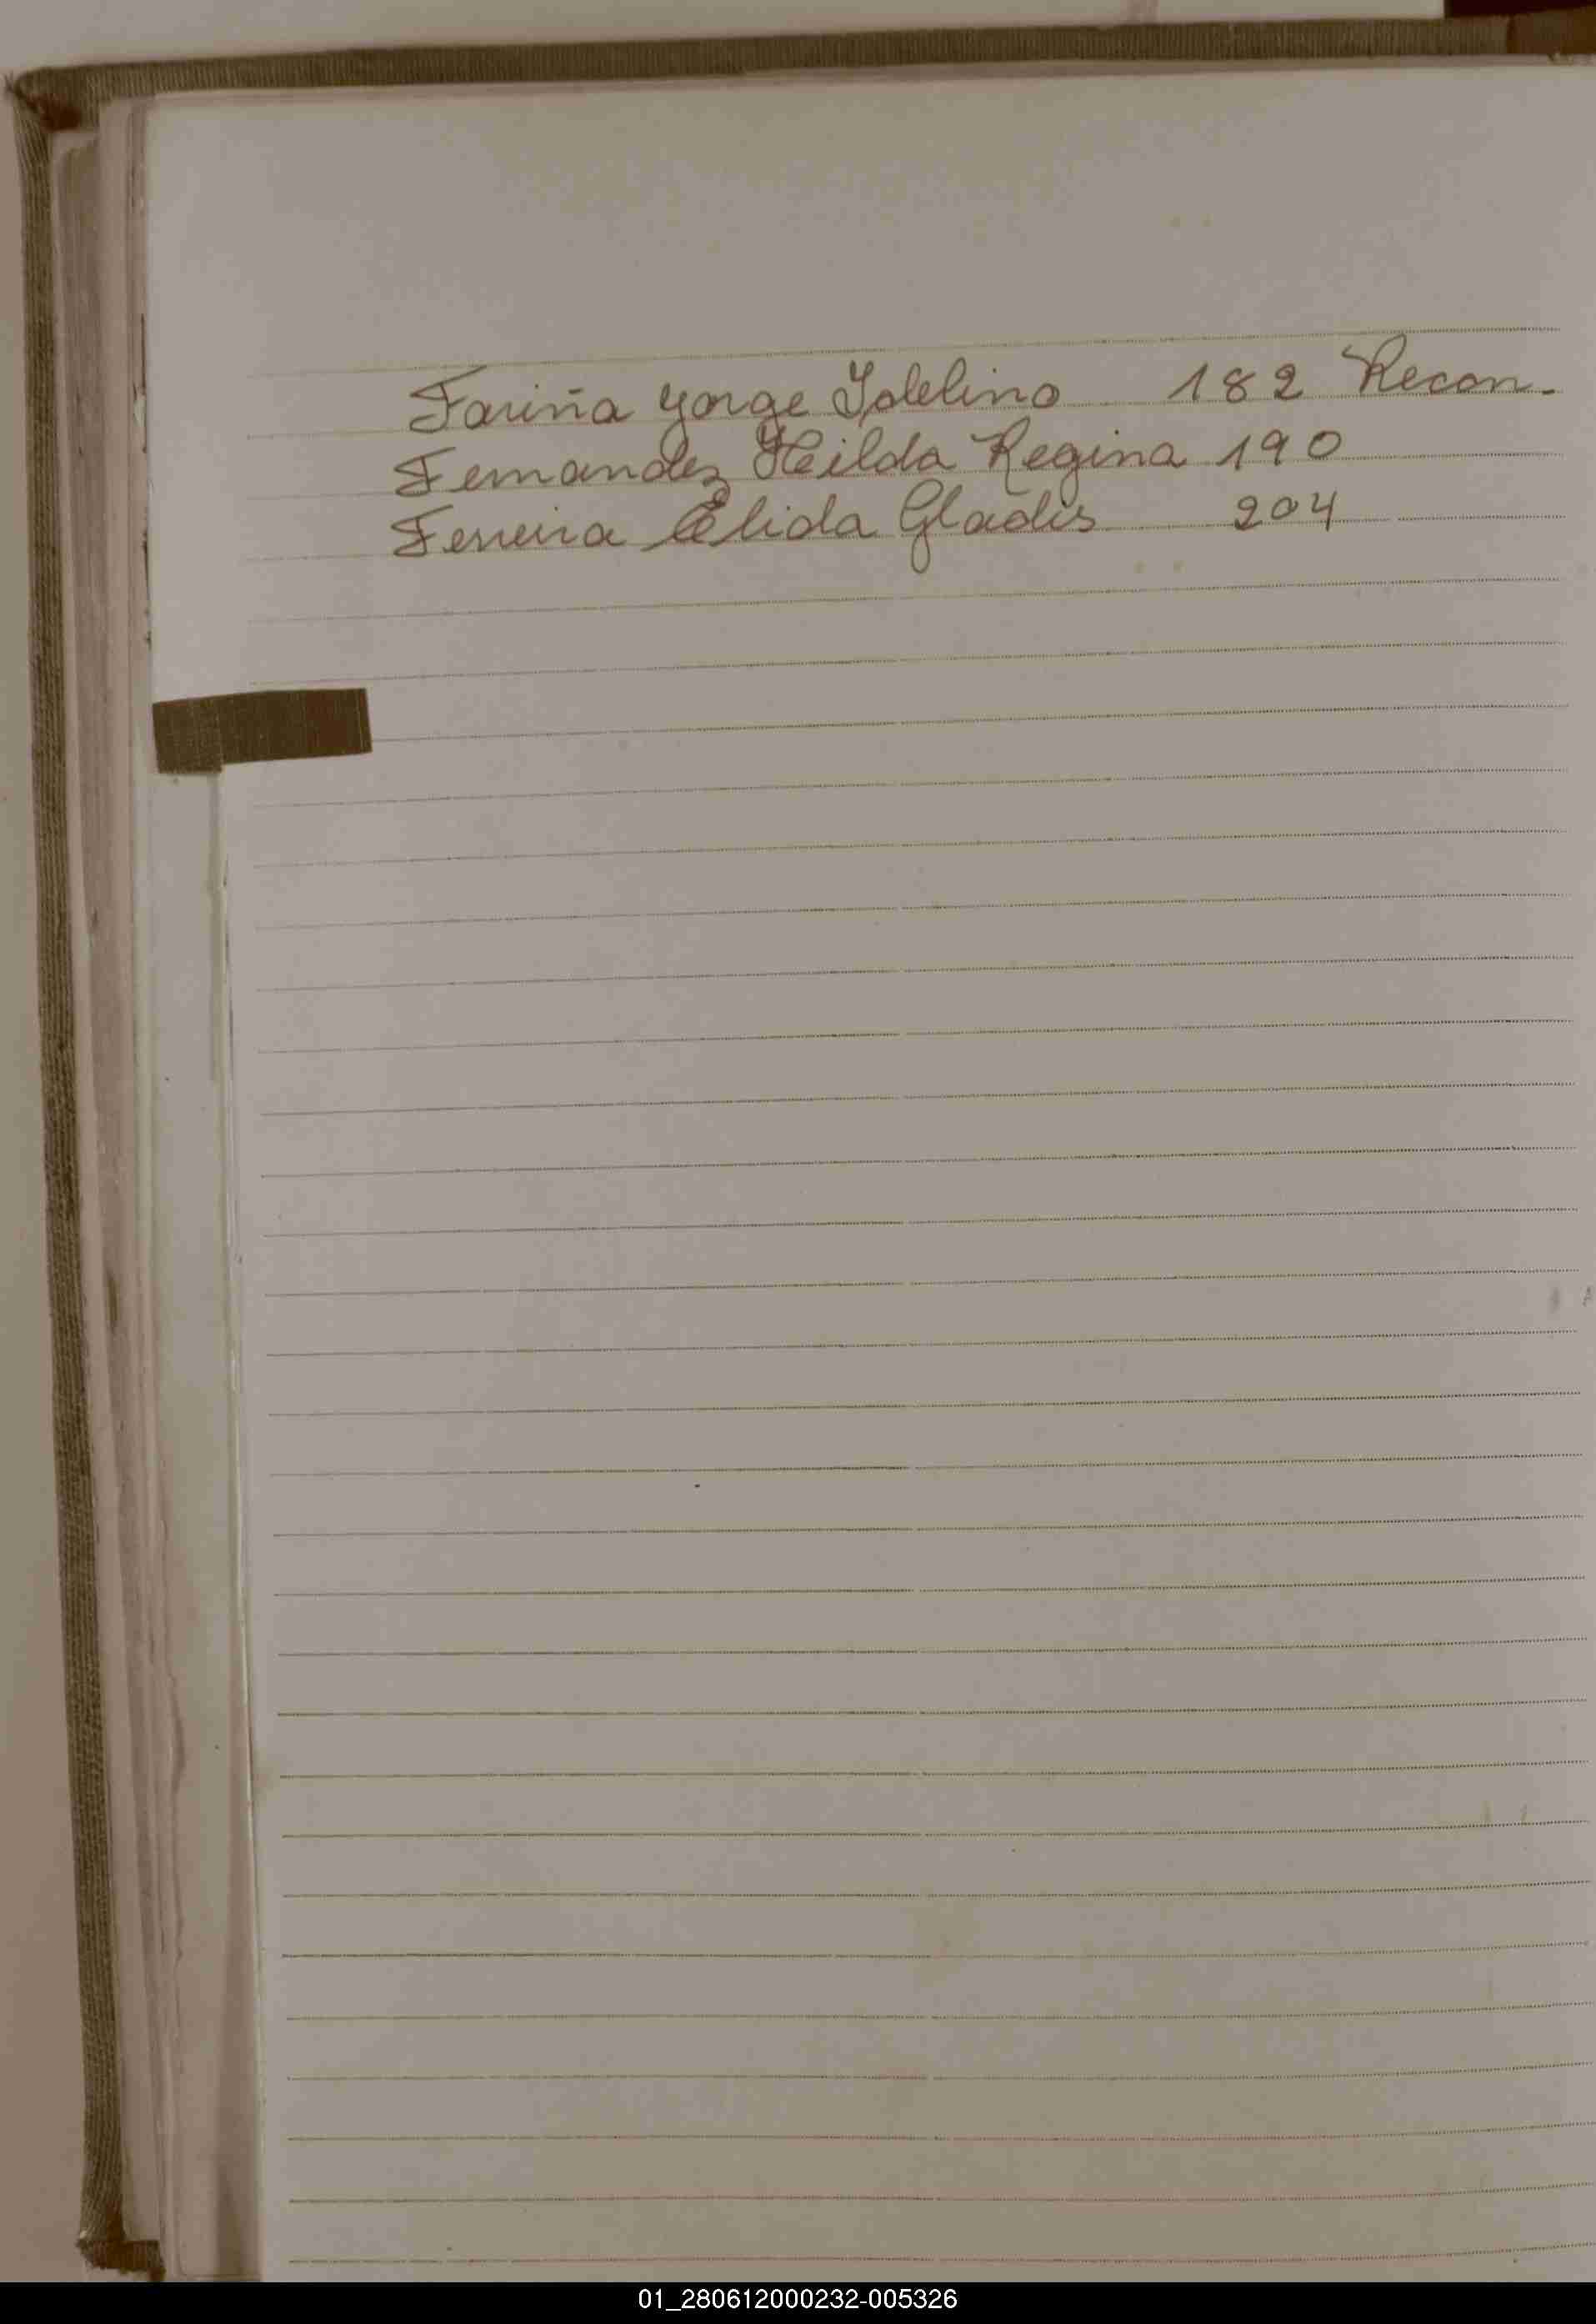 Fariña Yorge Idelino 182 Recon.
Fernandez Hilda Regina 190
Ferreira Elida Gladis 204
01_280612000232-005326